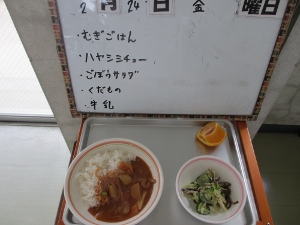 2月24日金曜日
・むぎごはん
・ハヤシシチュー
・ごぼうサラダ
・くだもの
・牛乳